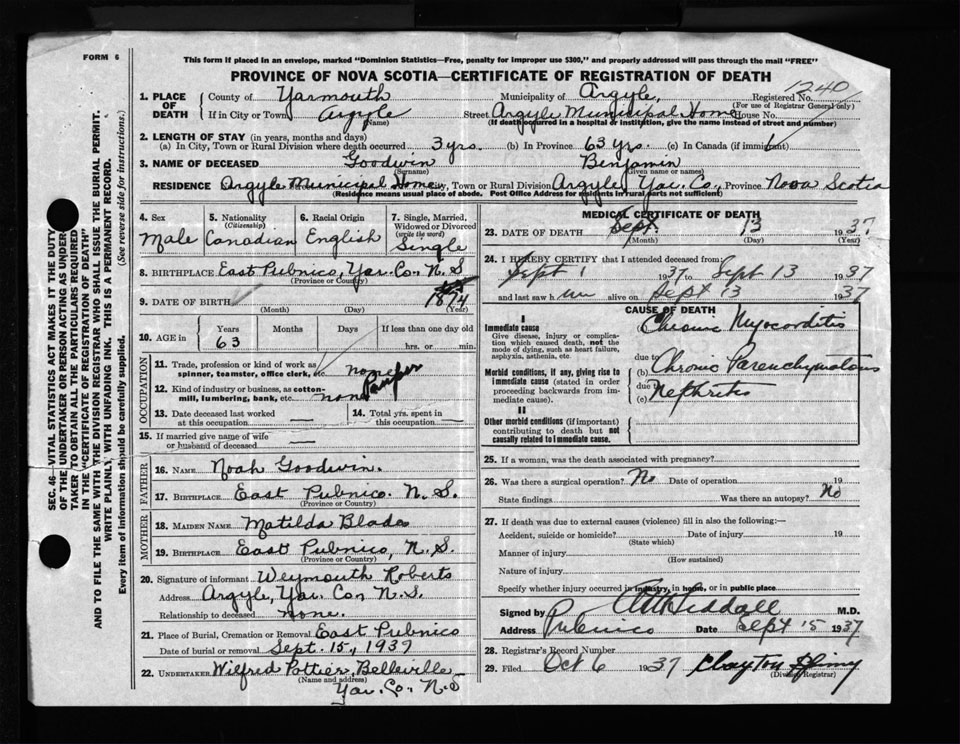 FORM 6
This form if placed in an envelope, marked "Dominion Statistics—Free, penalty for improper use $300," and properly addressed will pass through the mail "FREE"
PROVINCE OF NOVA SCOTIA—CERTIFICATE OF REGISTRATION OF DEATH
1240
1. PLACE OF DEATH County of Yarmouth Municipality of Argyle, Registered No.
(For use of Registrar General only)
If in City or Town Argyle Street Argyle Municipal Home House No.
(Name) (If death occurred in a hospital & institution, give the name instead of street and number)
2. LENGTH OF STAY (in years, months and days)
(a) In City, Town or Rural Division where death occurred 3 yrs. (b) In Province 63 yrs. (c) In Canada (if immigrant)
3. NAME OF DECEASED Goodwin Benjamin
(Surname) (Given name or names)
RESIDENCE Argyle Municipal Home City, Town or Rural Division Argyle, Yar. Co., Province Nova Scotia
(Residence means usual place of abode. Post Office Address for residents in rural parts not sufficient)
4. Sex Male
5. Nationality (Citizenship) Canadian
6. Racial Origin English
7. Single, Married, Widowed or Divorced (write the word) Single
8. BIRTHPLACE East Pubnico, Yar. Co. N.S
(Province or Country)
9. DATE OF BIRTH 1874
(Month) (Day) (Year)
10. AGE in Years 63 Months Days If less than one day old hrs. or min.
OCCUPATION
11. Trade, profession or kind of work as spinner, teamster, office clerk, etc. none Pauper
12. Kind of industry or business, as cotton-mill, lumbering, bank, etc. none
13. Date deceased last worked at this occupation —
14. Total yrs. spent in this occupation —
15. If married give name of wife or husband of deceased —
FATHER
16. NAME Noah Goodwin.
17. BIRTHPLACE East Pubnico. N.S.
(Province or Country)
MOTHER
18. MAIDEN NAME Matilda Blades
19. BIRTHPLACE East Pubnico, N.S.
(Province or Country)
20. Signature of informant Weymouth Roberts
Address Argyle, Yar. Co. N.S.
Relationship to deceased none.
21. Place of Burial, Cremation or Removal East Pubnico
Date of burial or removal Sept. 15, 1937
22. UNDERTAKER Wilfred Pottier, Belleville
(Name and address)
Yar. Co. N.S
MEDICAL CERTIFICATE OF DEATH
23. DATE OF DEATH Sept. 13 1937
(Month) (Day) (Year)
24. I HEREBY CERTIFY that I attended deceased from:
Sept 1 1937 to Sept 13 1937
and last saw him alive on Sept 13 1937
CAUSE OF DEATH
I
Immediate cause
Give disease, injury or complication which caused death, not the mode of dying, such as heart failure, asphyxia, asthenia, etc.
Chronic Myocarditis
due to
Morbid conditions, if any, giving rise to immediate cause (stated in order proceeding backwards from immediate cause).
(b) Chronic Parenchymatous
due to
(c) Nephritis
II
Other morbid conditions (if important) contributing to death but not causally related to immediate cause.
25. If a woman, was the death associated with pregnancy?
26. Was there a surgical operation? No Date of operation 19
State findings Was there an autopsy? No
27. If death was due to external causes (violence) fill in also the following:—
Accident, suicide or homicide? Date of injury 19
(State which)
Manner of injury
(How sustained)
Nature of injury
Specify whether injury occurred in industry, in home, or in public place
Signed by Siddall M.D.
Address Pubnico Date Sept 15 1937
28. Registrar's Record Number
29. Filed Oct 6 1937 Clayton
(Division Registrar)
SEC. 46—VITAL STATISTICS ACT MAKES IT THE DUTY
OF THE UNDERTAKER OR PERSON ACTING AS UNDERTAKER
TO OBTAIN ALL THE PARTICULARS REQUIRED
IN THE "CERTIFICATE OF REGISTRATION OF DEATH"
AND TO FILE THE SAME WITH THE DIVISION REGISTRAR WHO SHALL ISSUE THE BURIAL PERMIT.
WRITE PLAINLY, WITH UNFADING INK. THIS IS A PERMANENT RECORD.
Every item of information should be carefully supplied. (See reverse side for instructions.)